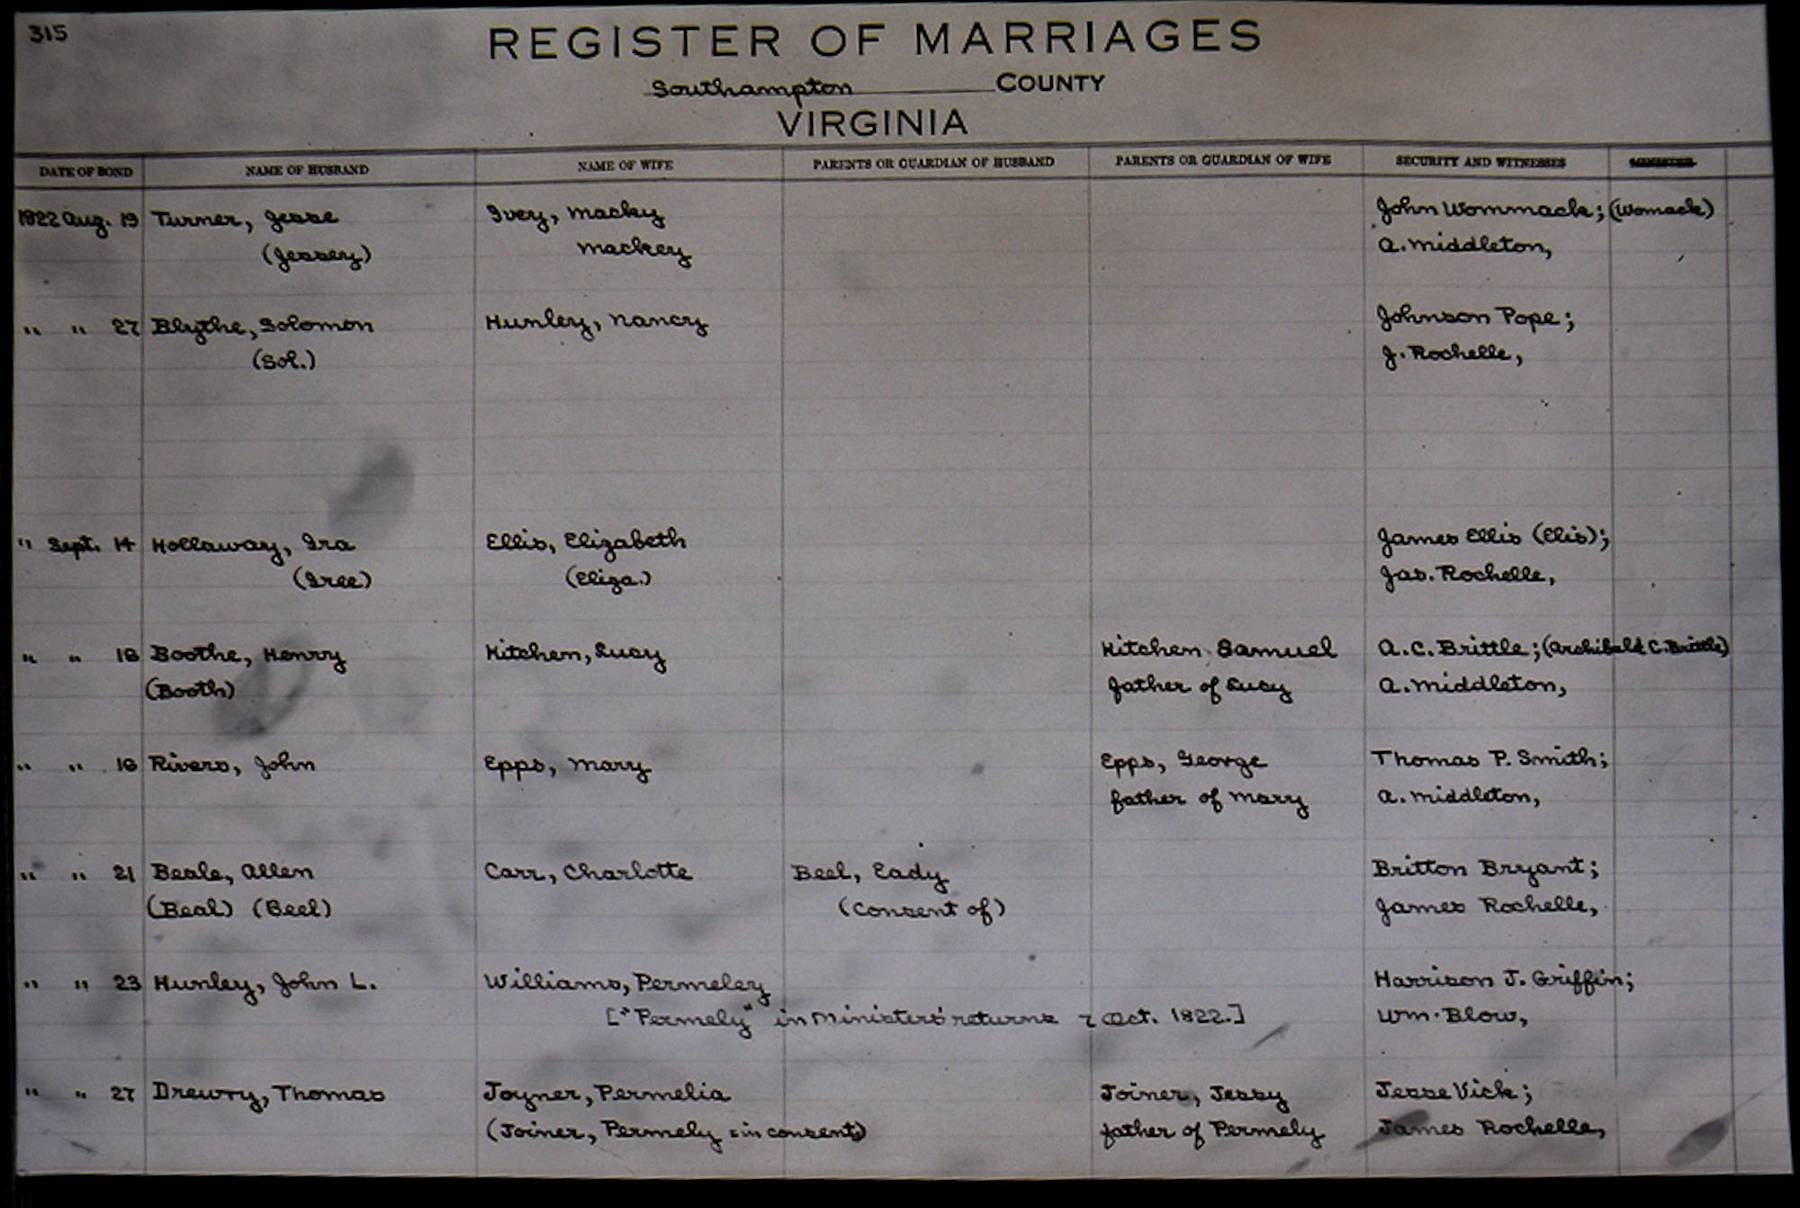 315
REGISTER OF MARRIAGES
Southampton COUNTY
VIRGINIA
DATE OF BOND NAME OF HUSBAND NAME OF WIFE PARENTS OR GUARDIAN OF HUSBAND PARENTS OR GUARDIAN OF WIFE SECURITY AND WITNESSES MINISTER
1822 Aug. 19 Turner, Jesse Ivey, Macky John Wommack; (Womack)
(Jessey) Mackey A. Middleton,
" " 27 Blythe, Solomon Hunley, Nancy Johnson Pope;
(Sol.) J. Rochelle,
" Sept. 14 Hollaway, Ira Ellis, Elizabeth James Ellis (Elis);
(Iree) (Eliza.) Jas. Rochelle,
" " 16 Boothe, Henry Kitchen, Lucy Kitchen Samuel A. C. Brittle; (Archibald C. Brittle)
(Booth) father of Lucy A. Middleton,
" " 16 Rivers, John Epps, Mary Epps, George Thomas P. Smith;
father of Mary A. Middleton,
" " 21 Beale, Allen Carr, Charlotte Beel, Eady Britton Bryant;
(Beal) (Beel) (Consent of) James Rochelle,
" " 23 Hunley, John L. Williams, Permeley Harrison J. Griffin;
["Permely" in Ministers' returns 2 Oct. 1822.] Wm. Blow,
" " 27 Drewry, Thomas Joyner, Permelia Joiner, Jessy Jesse Vick;
(Joiner, Permely : in consent) father of Permely James Rochelle,